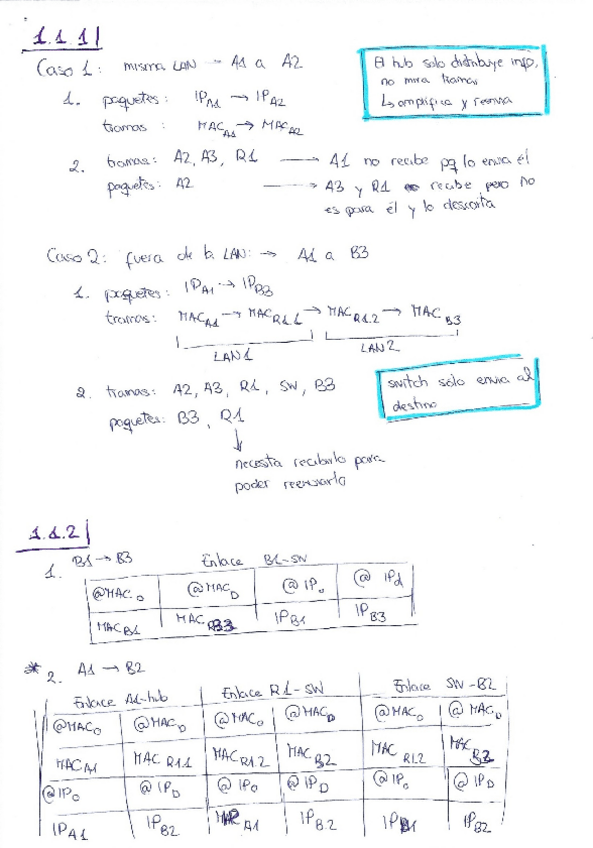 1.1.1
Caso 1: misma LAN → A1 a A2
El hub solo distribuye info,
no mira tramas
↳ amplifica y reenvia
1. paquetes: IP A1 → IP A2
tramas: MAC A1 → MAC A2
2. tramas: A2, A3, R1 → A1 no recibe pq lo envia él
paquetes: A2 → A3 y R1 recibe pero no
es para él y lo descarta
Caso 2: fuera de la LAN: → A1 a B3
1. paquetes: IP A1 → IP B3
tramas: MAC A1 → MAC R1.1 → MAC R1.2 → MAC B3
LAN1 LAN2
2. tramas: A2, A3, R1, SW, B3
switch solo envia al
destino
paquetes: B3, R1
↓
necesita recibirlo para
poder reenviarlo
1.1.2
1. B1 → B3 Enlace B1-SW
@MAC o @MAC D @IP o @IP d
MAC B1 MAC B3 IP B1 IP B3
* 2. A1 → B2
Enlace A1-hub Enlace R1-SW Enlace SW-B2
@MAC o @MAC D @MAC o @MAC D @MAC o @MAC D
MAC A1 MAC R1.1 MAC R1.2 MAC B2 MAC R1.2 MAC B2
@IP o @IP D @IP o @IP D @IP o @IP D
IP A1 IP B2 A1 IP B2 IP IP B2